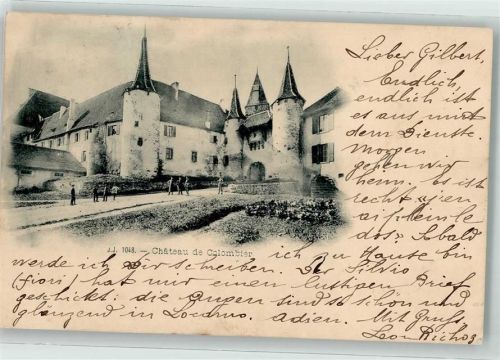 Lieber Gilbert,
Endlich,
endlich ist
es aus mit
dem Dienste.
Morgen
gehen wir
heim. Es ist
recht
dos. Sobald
J.J. 1048. — Château de Colombier
ich zu Hause bin
werde ich dir schreiben. Der Silvio
(fiori) hat mir einen lustigen Brief
geschickt: die Augen sind so schön und
glänzend in Locarno. Adien. Mit Gruss
Leon